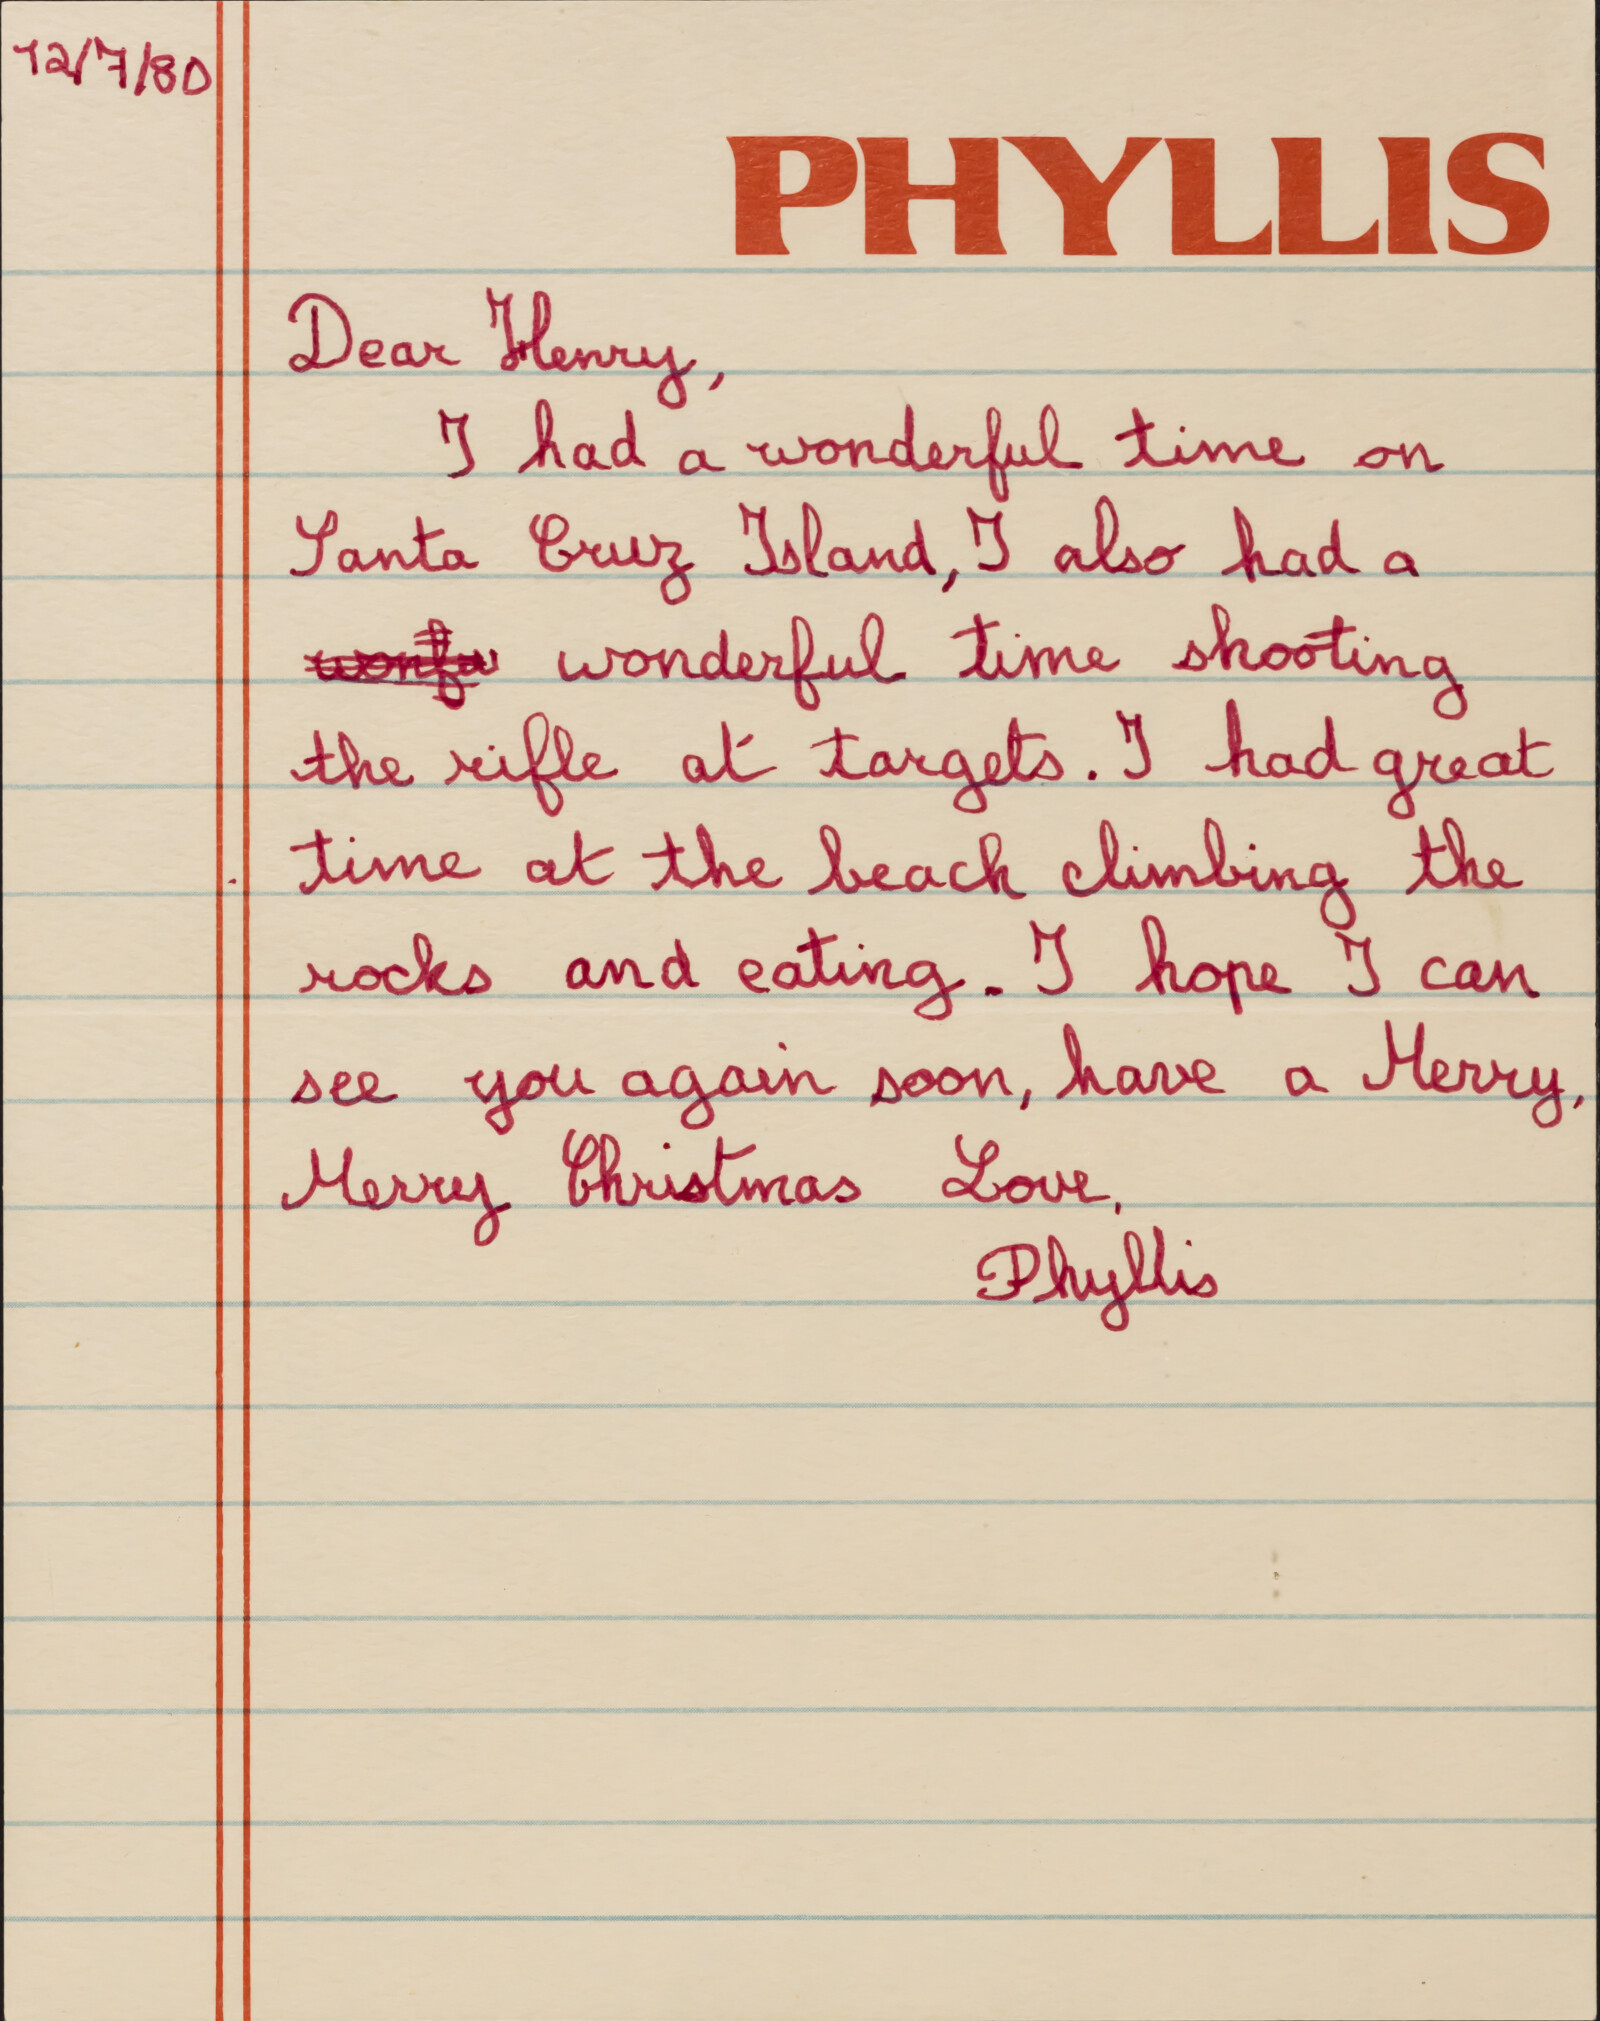 12/7/80
PHYLLIS
Dear Henry,
I had a wonderful time on
Santa Cruz Island, I also had a
wonderful time shooting
the rifle at targets. I had great
time at the beach climbing the
rocks and eating. I hope I can
see you again soon, have a Merry,
Merry Christmas Love,
Phyllis